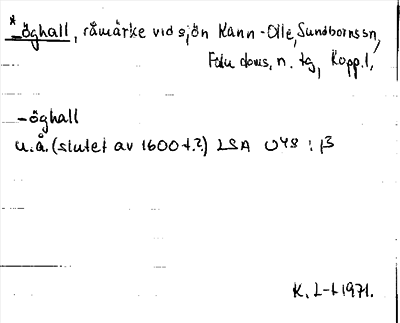 * -öghall, råmärke vid sjön Kann-Olle, Sundbornssn,
Falu doms. n. tg, Kopp. l,
-öghall
u.å. (slutet av 1600 t.?) LSA U48 : β
K. L-t 1971.